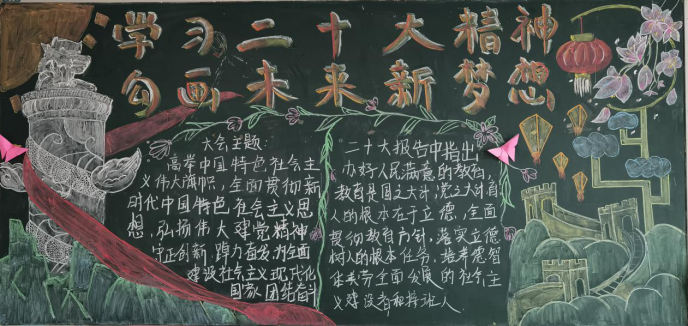 学习二十大精神
勾画未来新梦想
大会主题:
高举中国特色社会主
义伟大旗帜,全面贯彻新
时代中国特色社会主义思
想,弘扬伟大建党精神
守正创新,踔力奋发,为全面
建设社会主义现代化
国家团结奋斗
"二十大报告中指出
办好人民满意的教育,
教育是国之大计,党之大计,育
人的根本在于立德,全面
贯彻教育方针,落实立德
树人的根本任务,培养德智
体美劳全面发展的社会主
义建设者和接班人